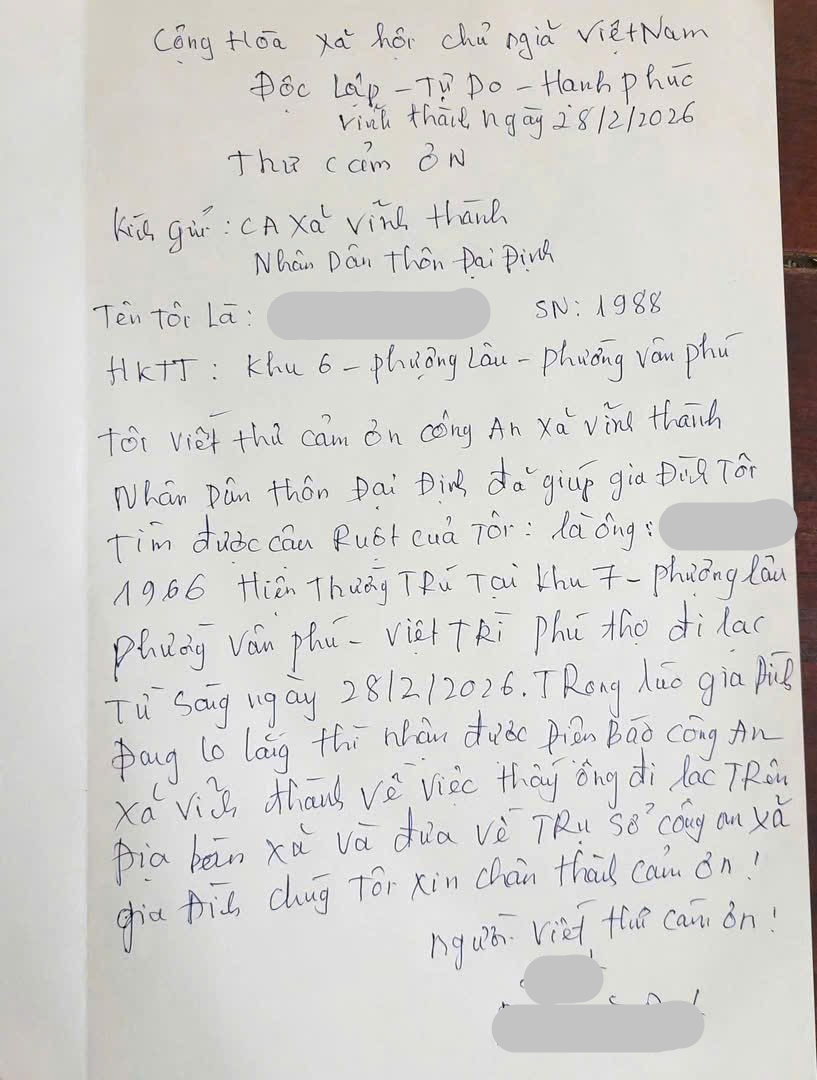 Cộng Hòa xã hội chủ nghĩa Việt Nam
Độc Lập - Tự Do - Hạnh phúc
Vĩnh thành ngày 28/2/2026
Thư cảm ơn
Kính gửi : CA xã Vĩnh thành
Nhân Dân thôn Đại Định
Tên tôi Là : SN: 1988
HKTT : Khu 6 - phượng Lâu - phường Vân phú
Tôi viết thư cảm ơn công An xã Vĩnh thành
Nhân Dân thôn Đại Định đã giúp gia Đình Tôi
Tìm được cậu Ruột của Tôi : là ông :
1966 Hiện Thường TRú Tại khu 7 - phượng lâu
phường Vân phú - Việt TRì phú thọ đi lạc
Từ sáng ngày 28/2/2026. TRong lúc gia Đình
Đang lo lắng thì nhận được Điện Báo công An
xã Vĩnh thành về việc thấy ông đi lạc TRên
Địa bàn xã và đưa về TRụ sở công an xã
gia Đình chúng Tôi xin chân thành cảm ơn !
người viết thư cảm ơn !